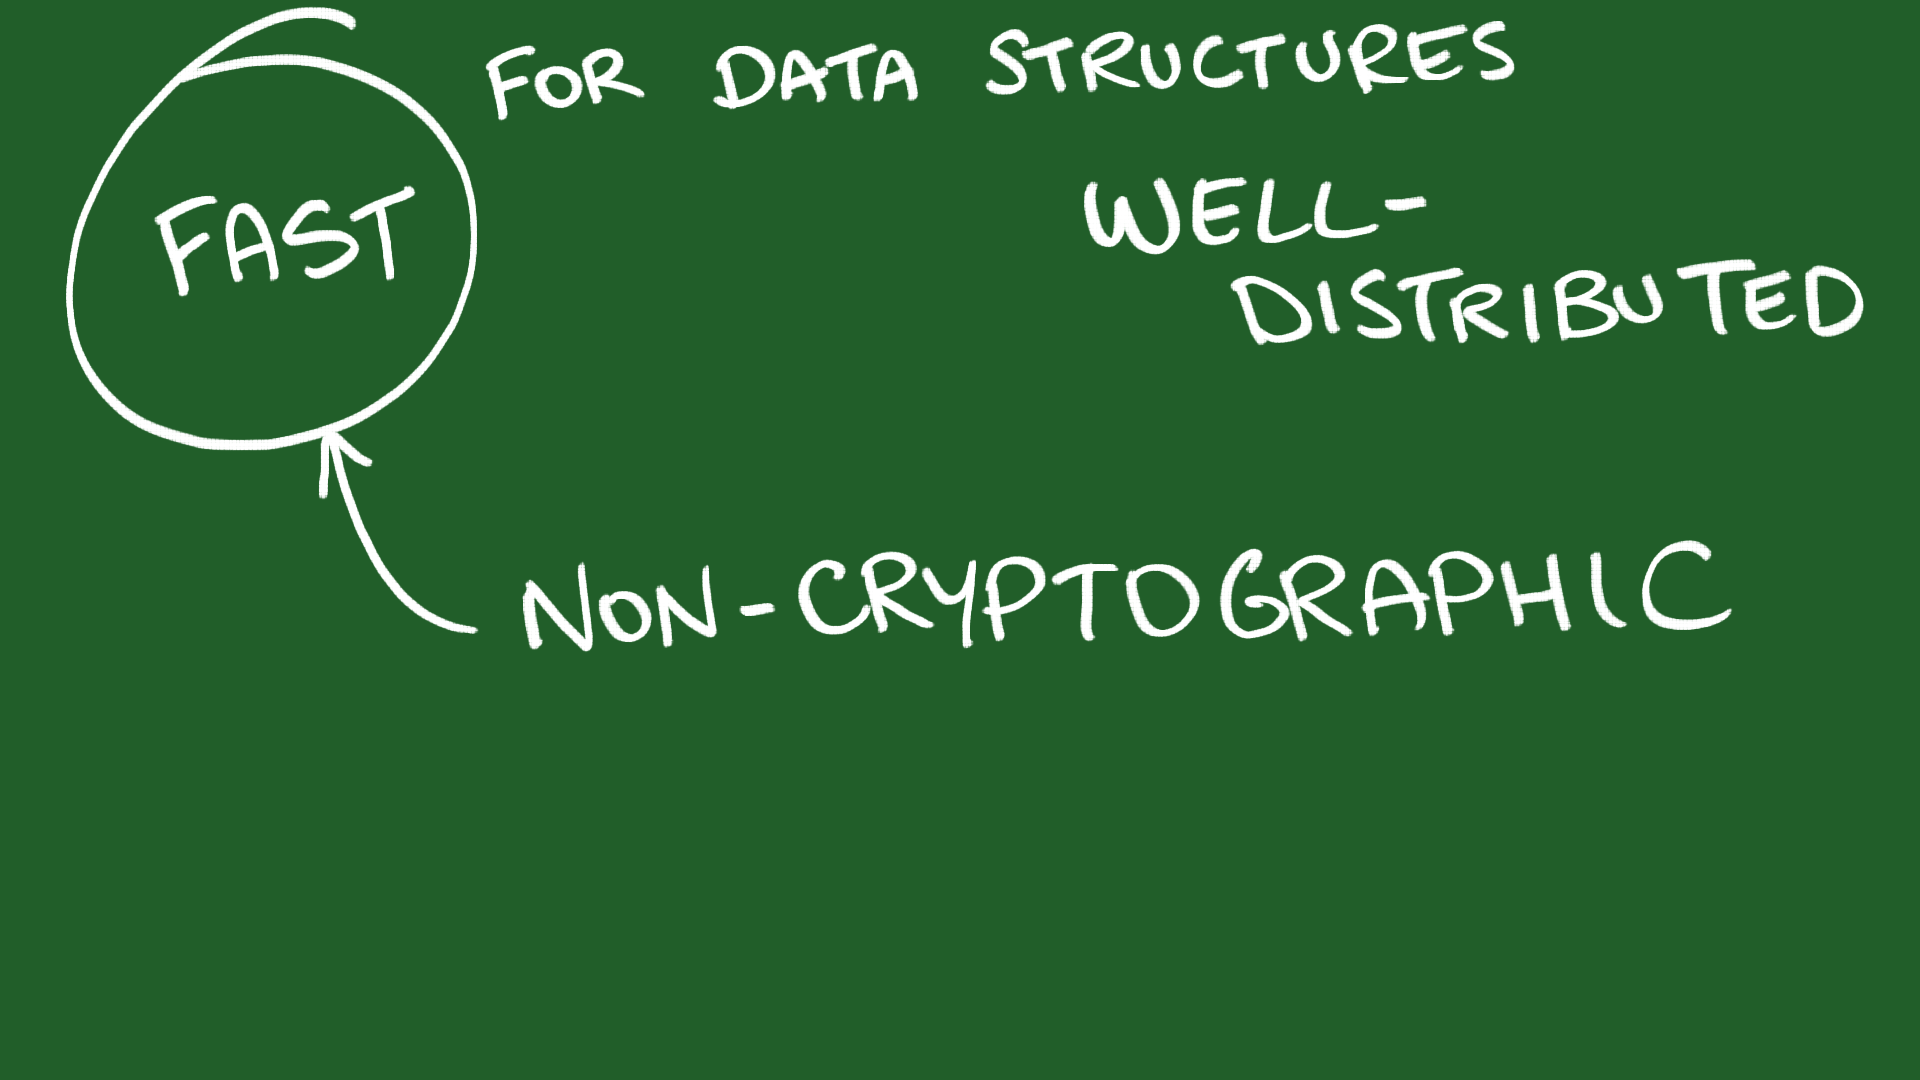 FOR DATA STRUCTURES
FAST
WELL-
DISTRIBUTED
NON-CRYPTOGRAPHIC